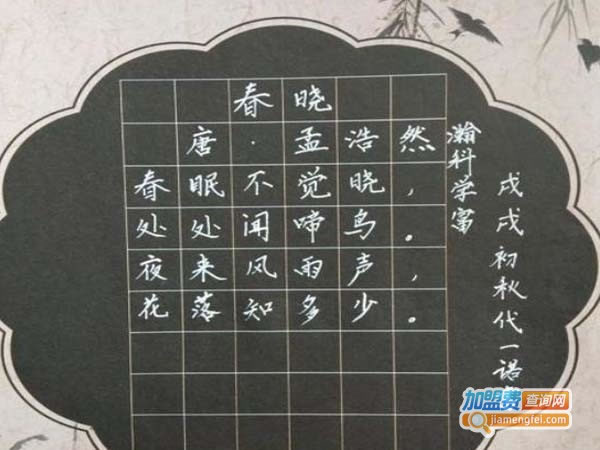 春晓
唐·孟浩然
春眠不觉晓，
处处闻啼鸟。
夜来风雨声，
花落知多少。
瀚科学富
戊戌初秋代一诺
加盟费查询网
jiamengfei.com